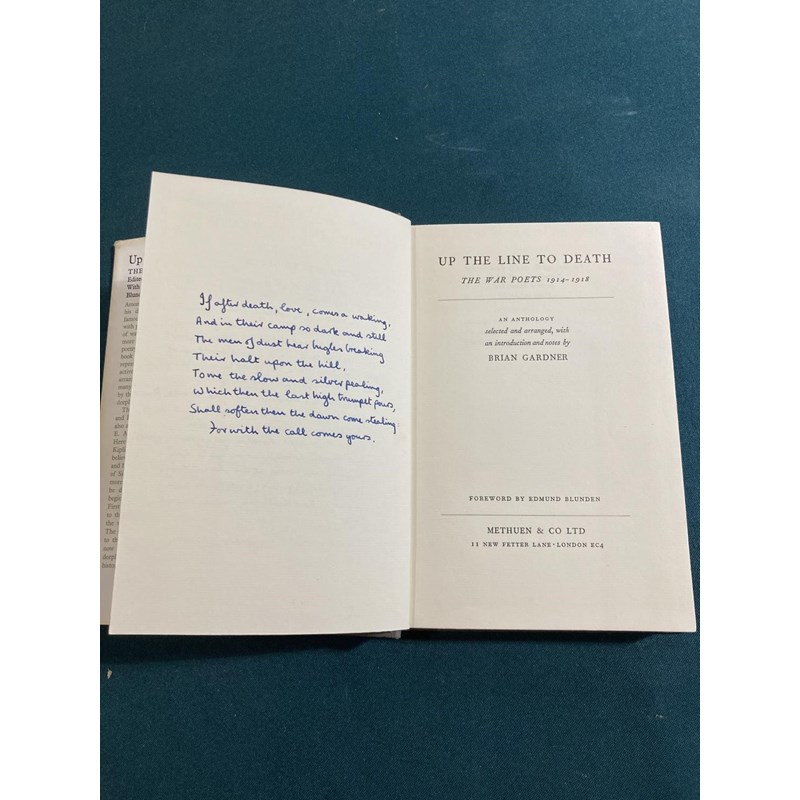 Up
THE
Edite
With
Blun
If after death, love, comes a waking,
And in their camp so dark and still
The men of dust hear bugles breaking
Their halt upon the hill,
To me the slow and silver pealing,
Which then the last high trumpet pours,
Shall softer then the dawn come stealing:
For with the call comes yours.
UP THE LINE TO DEATH
THE WAR POETS 1914–1918
AN ANTHOLOGY
selected and arranged, with
an introduction and notes by
BRIAN GARDNER
FOREWORD BY EDMUND BLUNDEN
METHUEN & CO LTD
11 NEW FETTER LANE · LONDON EC4